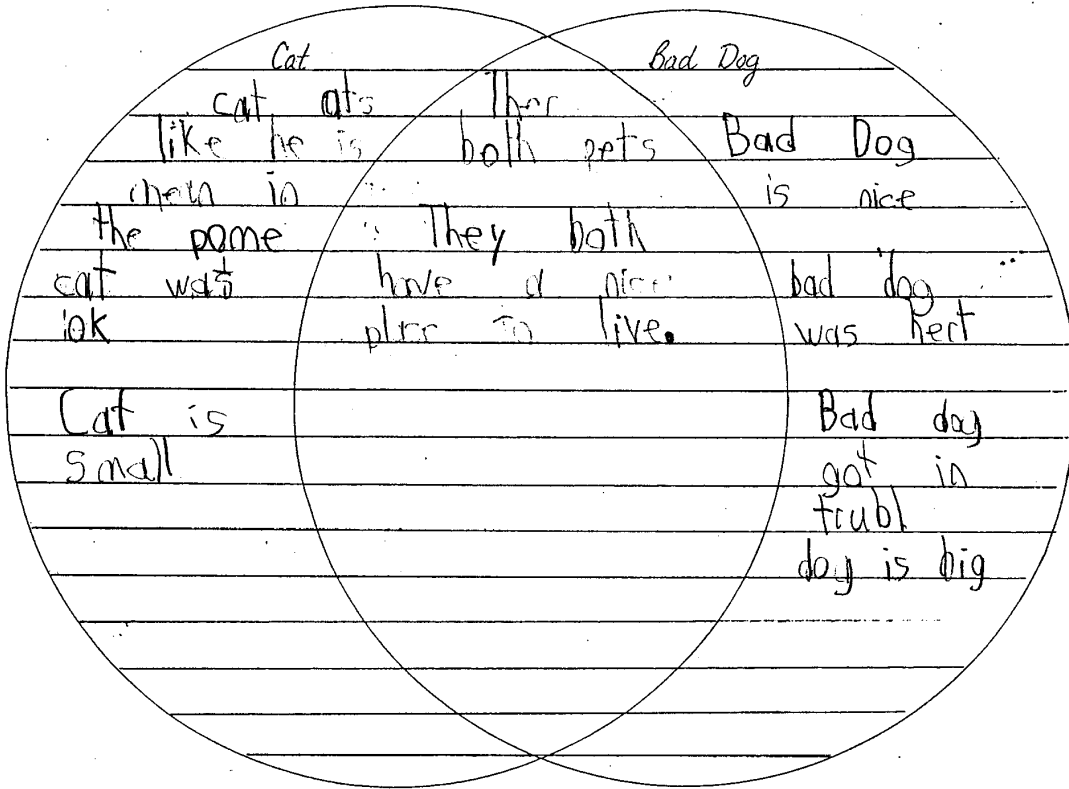 Cat
cat ats
like he is
in
the pome
cat was
iok
Cat is
small
Ther
both pets
They both
have a nice
to live.
Bad Dog
Bad Dog
is nice
bad dog
was hert
Bad dog
got in
trubl
dog is big